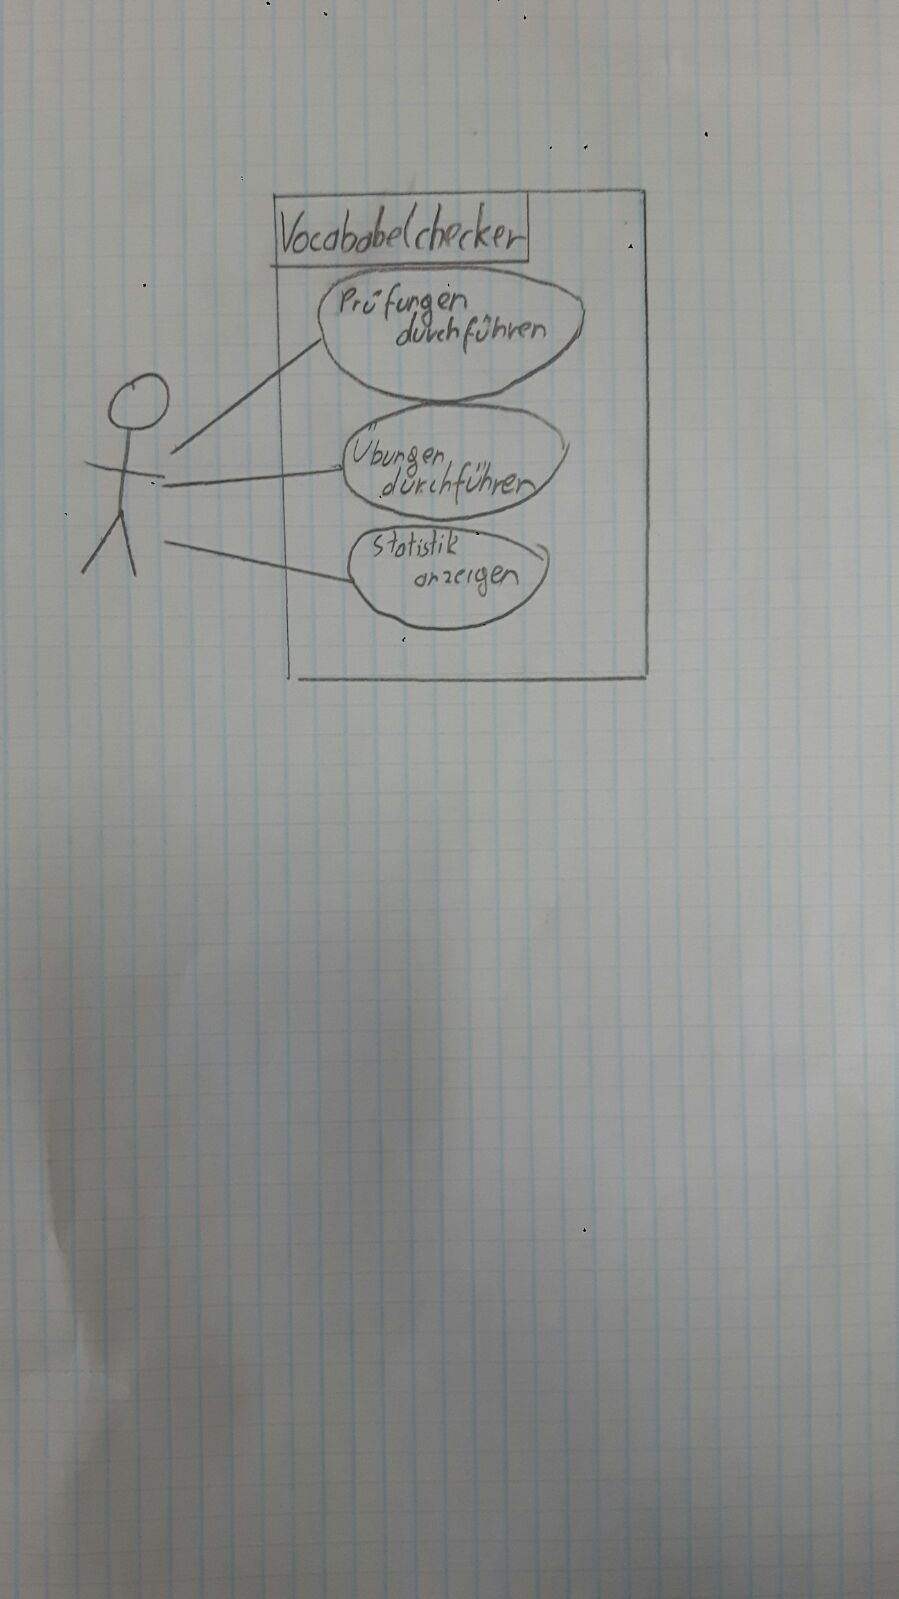 Vocababelchecker
Prüfungen
durchführen
Übungen
durchführen
Statistik
anzeigen